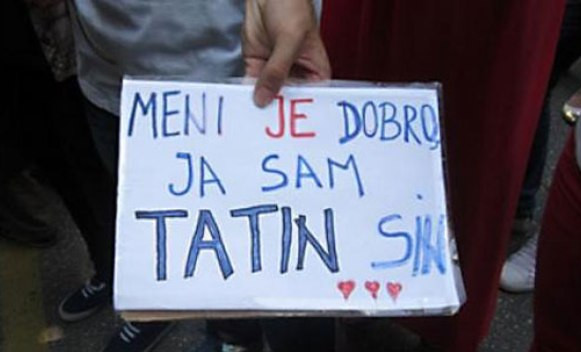 MENI JE DOBRO,
JA SAM
TATIN SIN